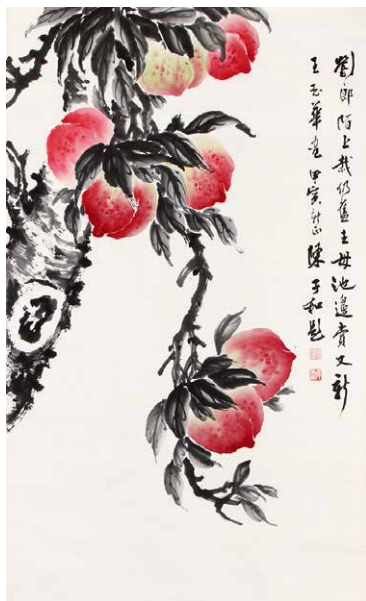 劉郎陌上栽仍舊王母池邊賣又新
王玉華画甲寅新正陳子和題